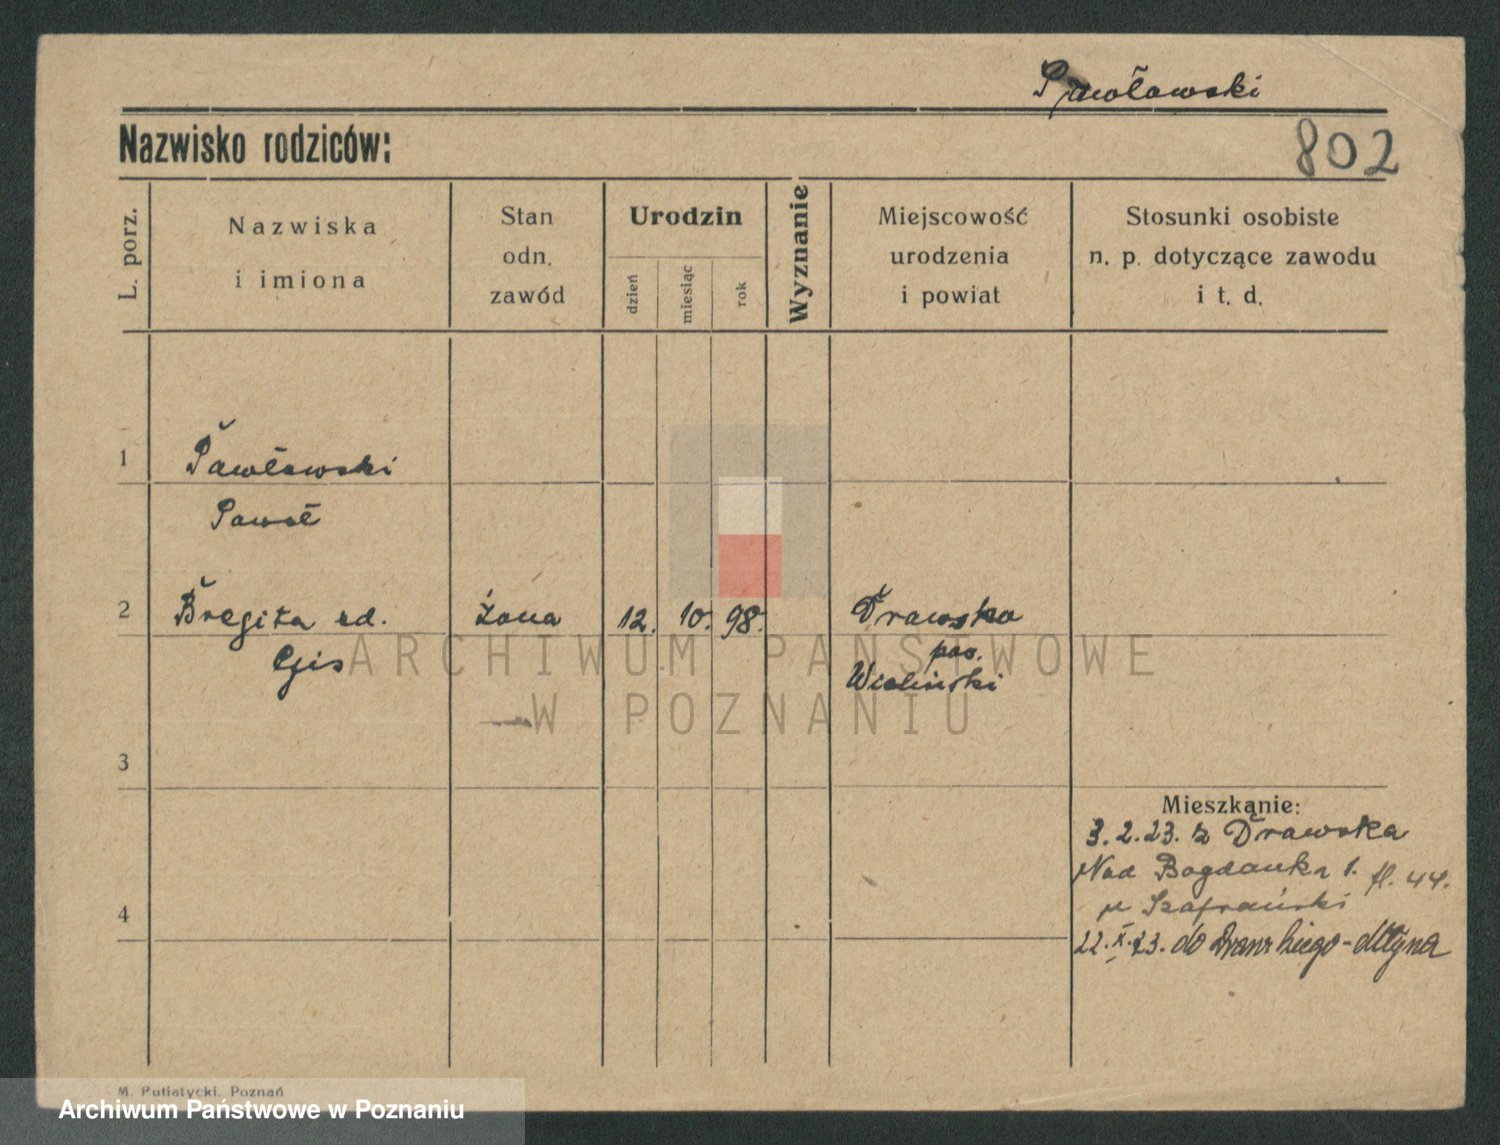 Pawławski
Nazwisko rodziców:
802
L. porz.
Nazwiska
i imiona
Stan
odn.
zawód
Urodzin
dzień
miesiąc
rok
Wyznanie
Miejscowość
urodzenia
i powiat
Stosunki osobiste
n. p. dotyczące zawodu
i t. d.
1
Pawławski
Paweł
2
Bregita rd.
Gjis
żona
12. 10. 98.
Drawsko
pow.
Wieliński
3
Mieszkanie:
3.2.23. z Drawska
Nad Bogdanka 1. fl. 44.
u Szafrański
22.X.23. do Młyna
4
M. Putiatycki, Poznań
ARCHIWUM PAŃSTWOWE
W POZNANIU
Archiwum Państwowe w Poznaniu